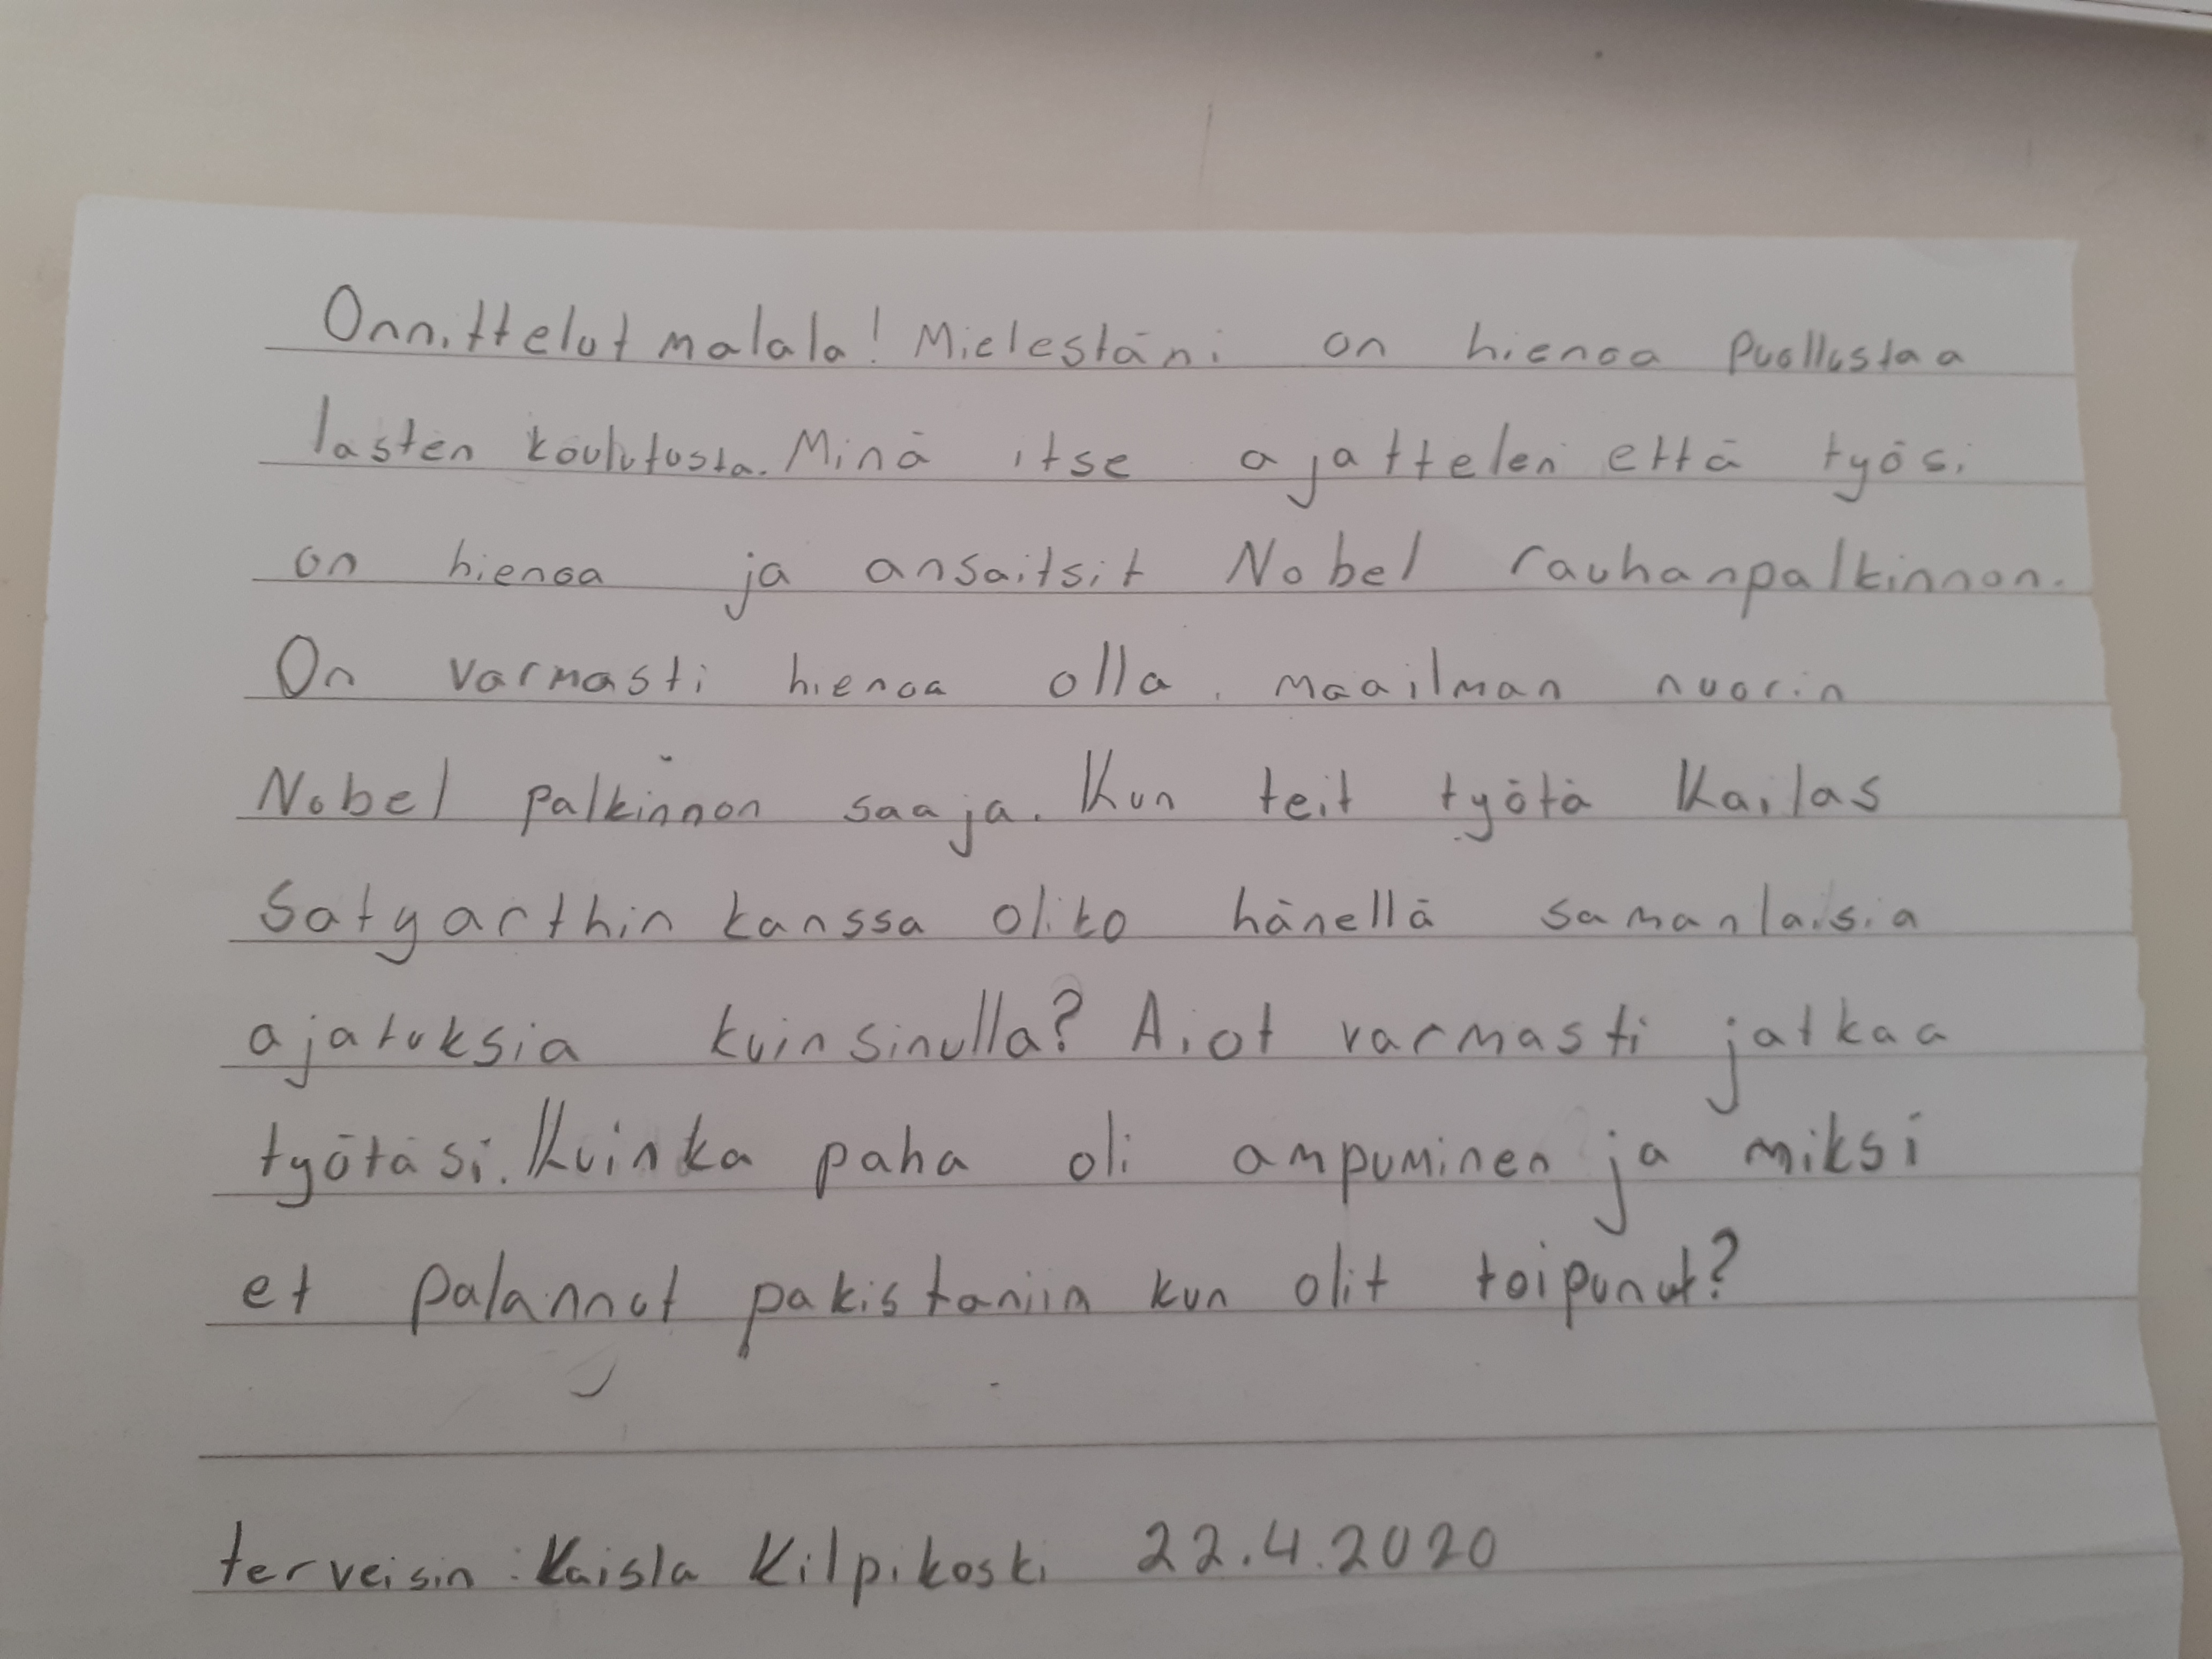 Onnittelut malala! Mielestäni on hienoa puollustaa
lasten koulutusta. Minä itse ajattelen että työsi
on hienoa ja ansaitsit Nobel rauhanpalkinnon.
On varmasti hienoa olla maailman nuorin
Nobel palkinnon saaja. Kun teit työtä Kailas
Satyarthin kanssa oliko hänellä samanlaisia
ajatuksia kuin sinulla? Aiot varmasti jatkaa
työtäsi. Kuinka paha oli ampuminen ja miksi
et palannut pakistaniin kun olit toipunut?
terveisin: Kaisla Kilpikoski 22.4.2020